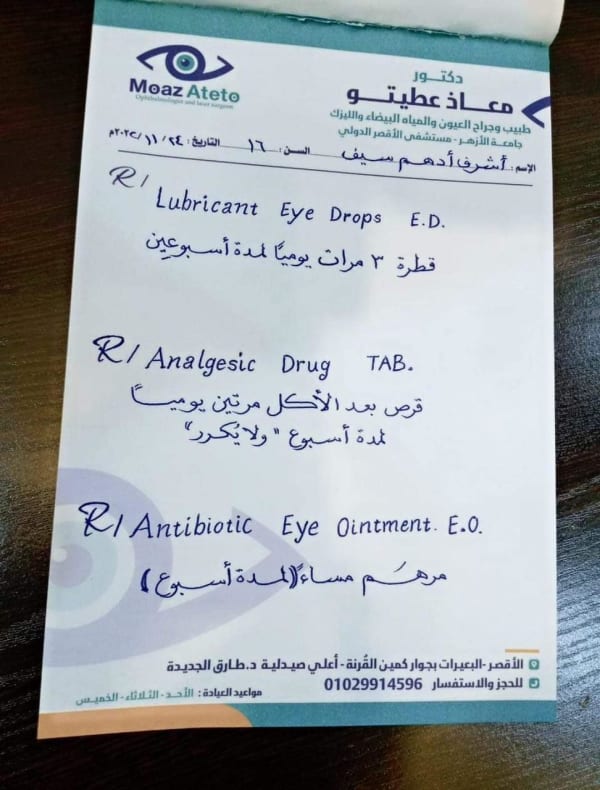 Moaz Ateto
Ophthalmologist and laser surgeon
دكتور
معاذ عطيتو
طبيب وجراح العيون والمياه البيضاء والليزك
جامعة الأزهر - مستشفى الأقصر الدولي
الإسم: أشرف أدهم سيف السن: ١٦ التاريخ: ٢٤ / ١١ / ٢٠٢٢م
R/ Lubricant Eye Drops E.D.
قطرة ٣ مرات يومياً لمدة أسبوعين
R/ Analgesic Drug TAB.
قرص بعد الأكل مرتين يومياً
لمدة أسبوع "ولا يُكرر"
R/ Antibiotic Eye Ointment. E.O.
مرهم مساءً (لمدة أسبوع)
الأقصر -البعيرات بجوار كمين القُرنة - أعلي صيدلية د.طارق الجديدة
للحجز والاستفسار 01029914596
مواعيد العيادة : الأحد - الثلاثاء - الخميس